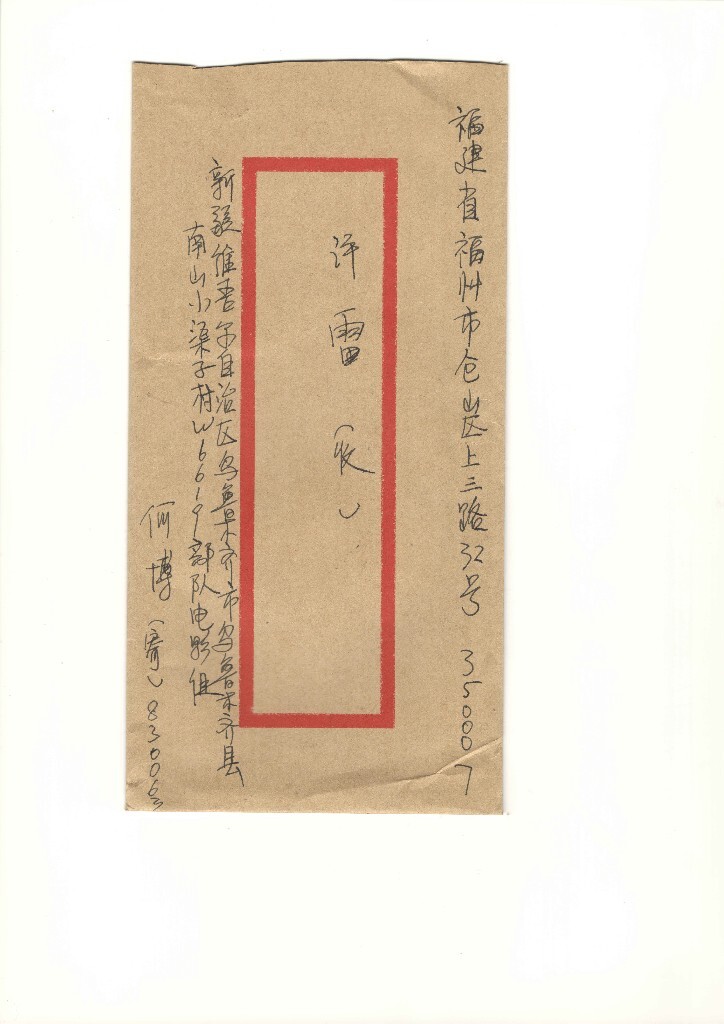 福建省福州市仓山区上三路32号 350007
许雷（收）
新疆维吾尔自治区乌鲁木齐市乌鲁木齐县
南山小渠子村W6619部队电影组
何博（寄）830063